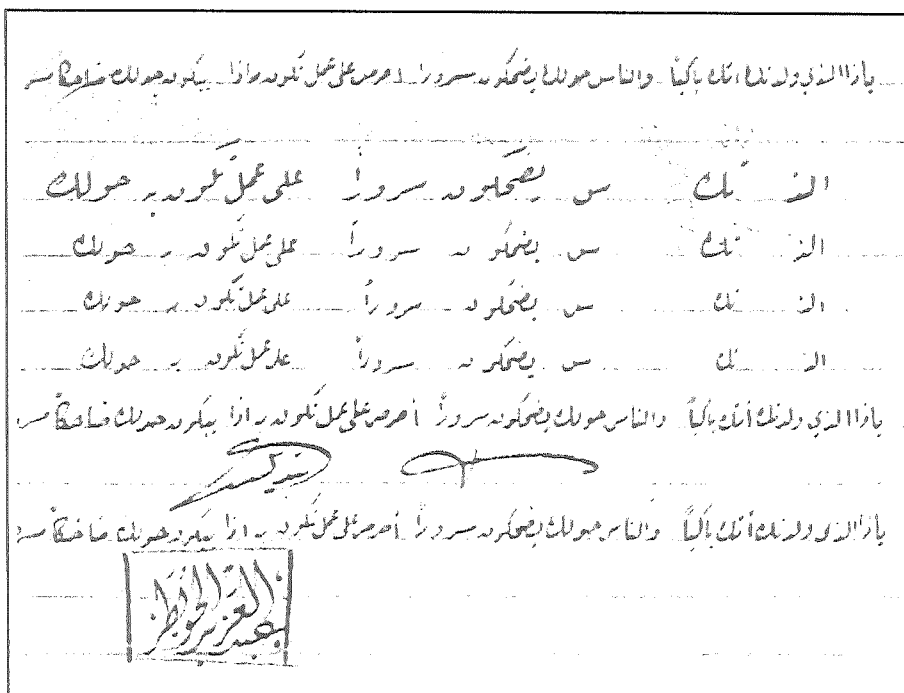 ياذا الذي ولدتك أمك باكياً والناس حولك يضحكون سروراً احرص على عمل تكون به اذا يبكون حولك ضاحكاً مسر
الذ تك س يضحكون سروراً على عمل تكون به حولك
الذ تك س يضحكون سروراً على عمل تكون به حولك
الذ تك س يضحكون سروراً على عمل تكون به حولك
الذ تك س يضحكون سروراً على عمل تكون به حولك
ياذا الذي ولدتك أمك باكياً والناس حولك يضحكون سروراً أحرص على عمل تكون به اذا يبكون حولك ضاحكاً مسر
ياذا الذي ولدتك أمك باكياً والناس حولك يضحكون سروراً أحرص على عمل تكون به اذا يبكون حولك ضاحكاً مسر
عبدالعزيز